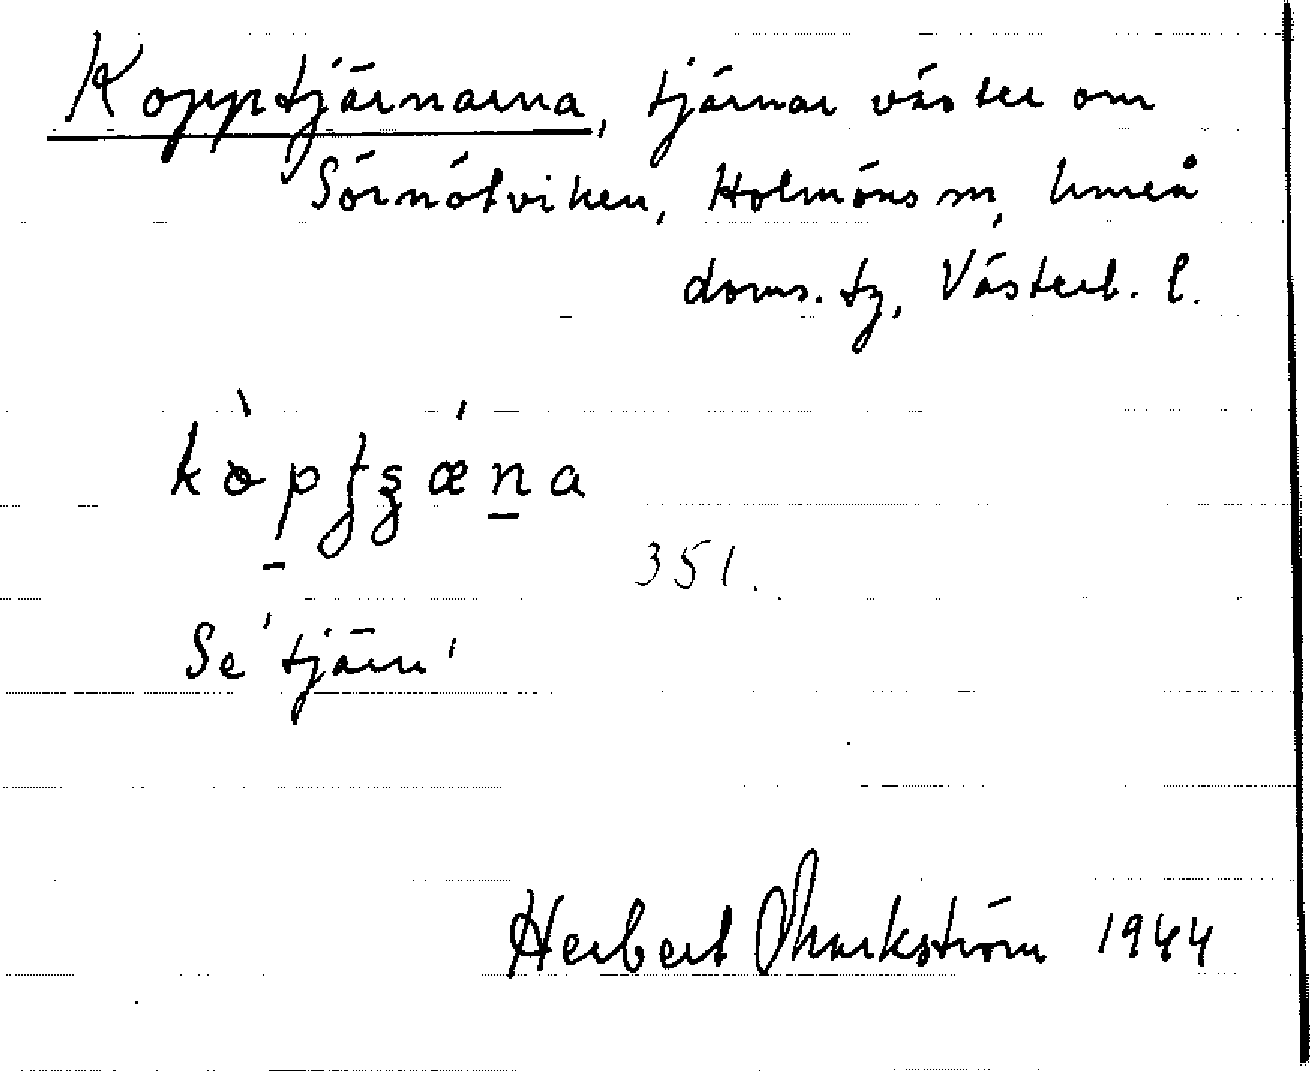 Kopptjärnarna, tjärnar väster om
Sörnötviken, Holmöns sn, Umeå
doms. tg, Västerb. l.
351.
Se 'tjärn'
Herbert Markström 1944